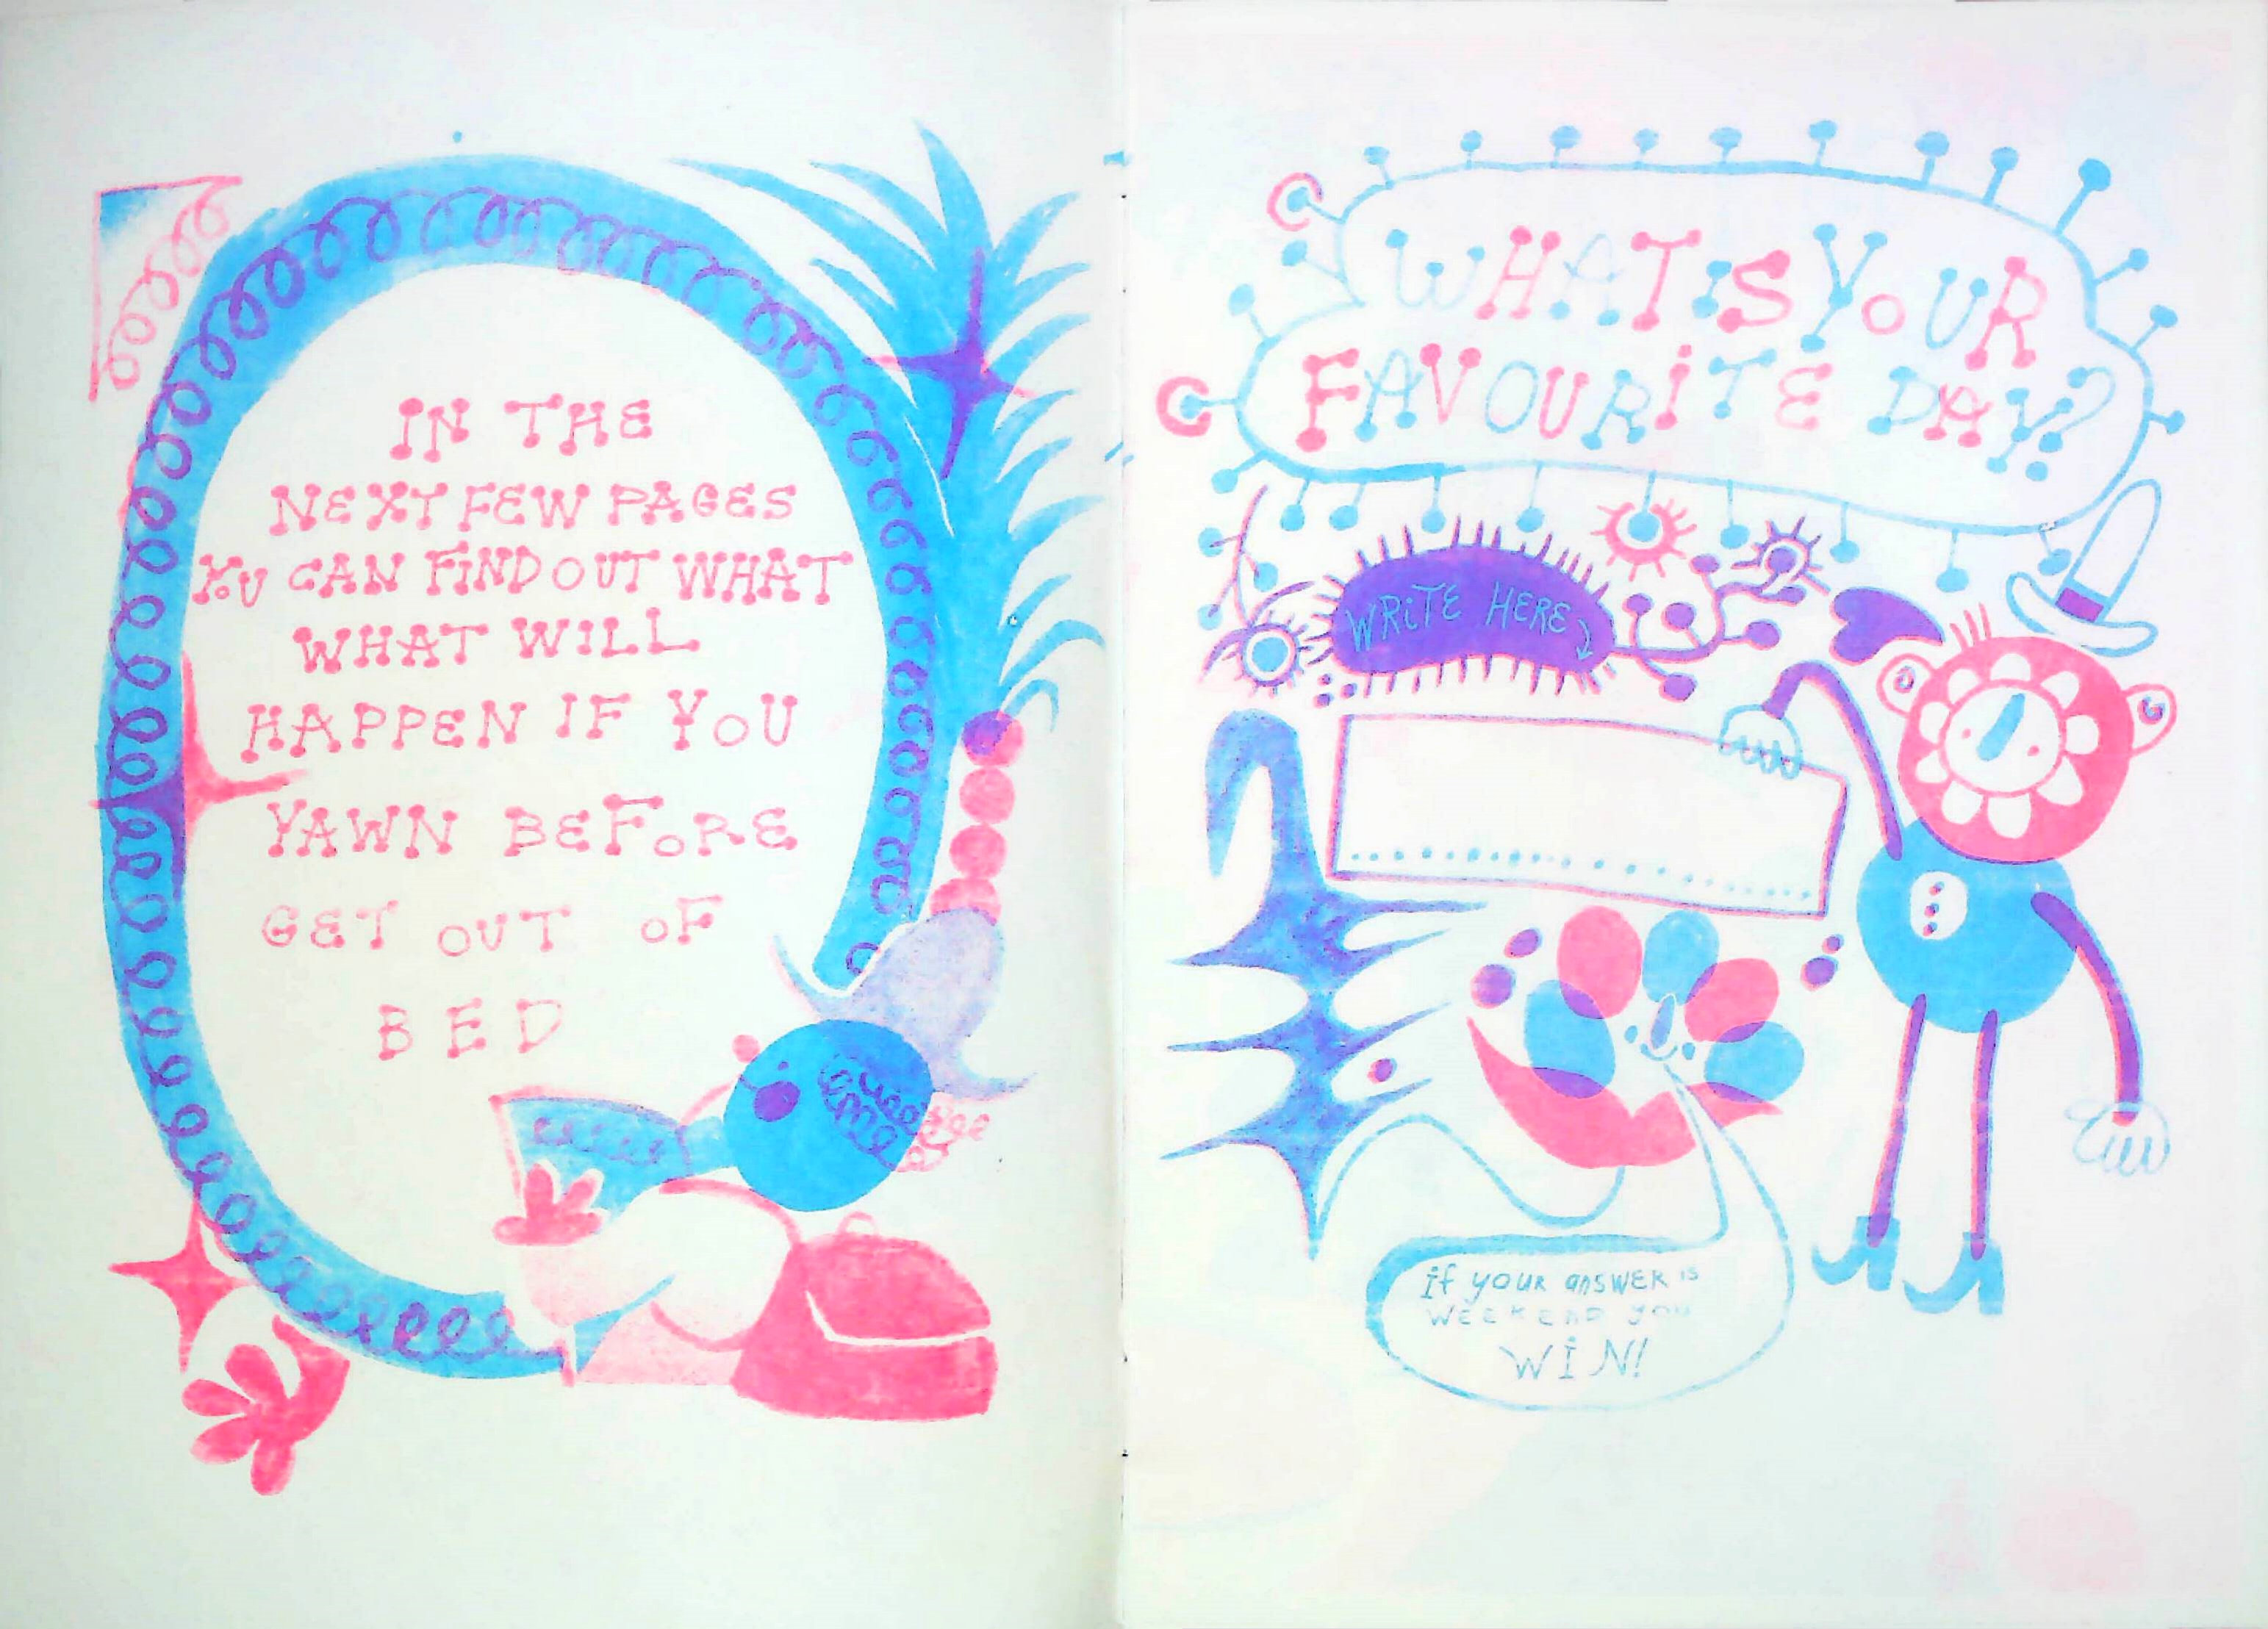 IN THE
NEXT FEW PAGES
YOU CAN FIND OUT WHAT
WHAT WILL
HAPPEN IF YOU
YAWN BEFORE
GET OUT OF
BED
WHAT IS YOUR
FAVOURITE DAY?
WRITE HERE
if your answer is
WEEKEND you
WIN!